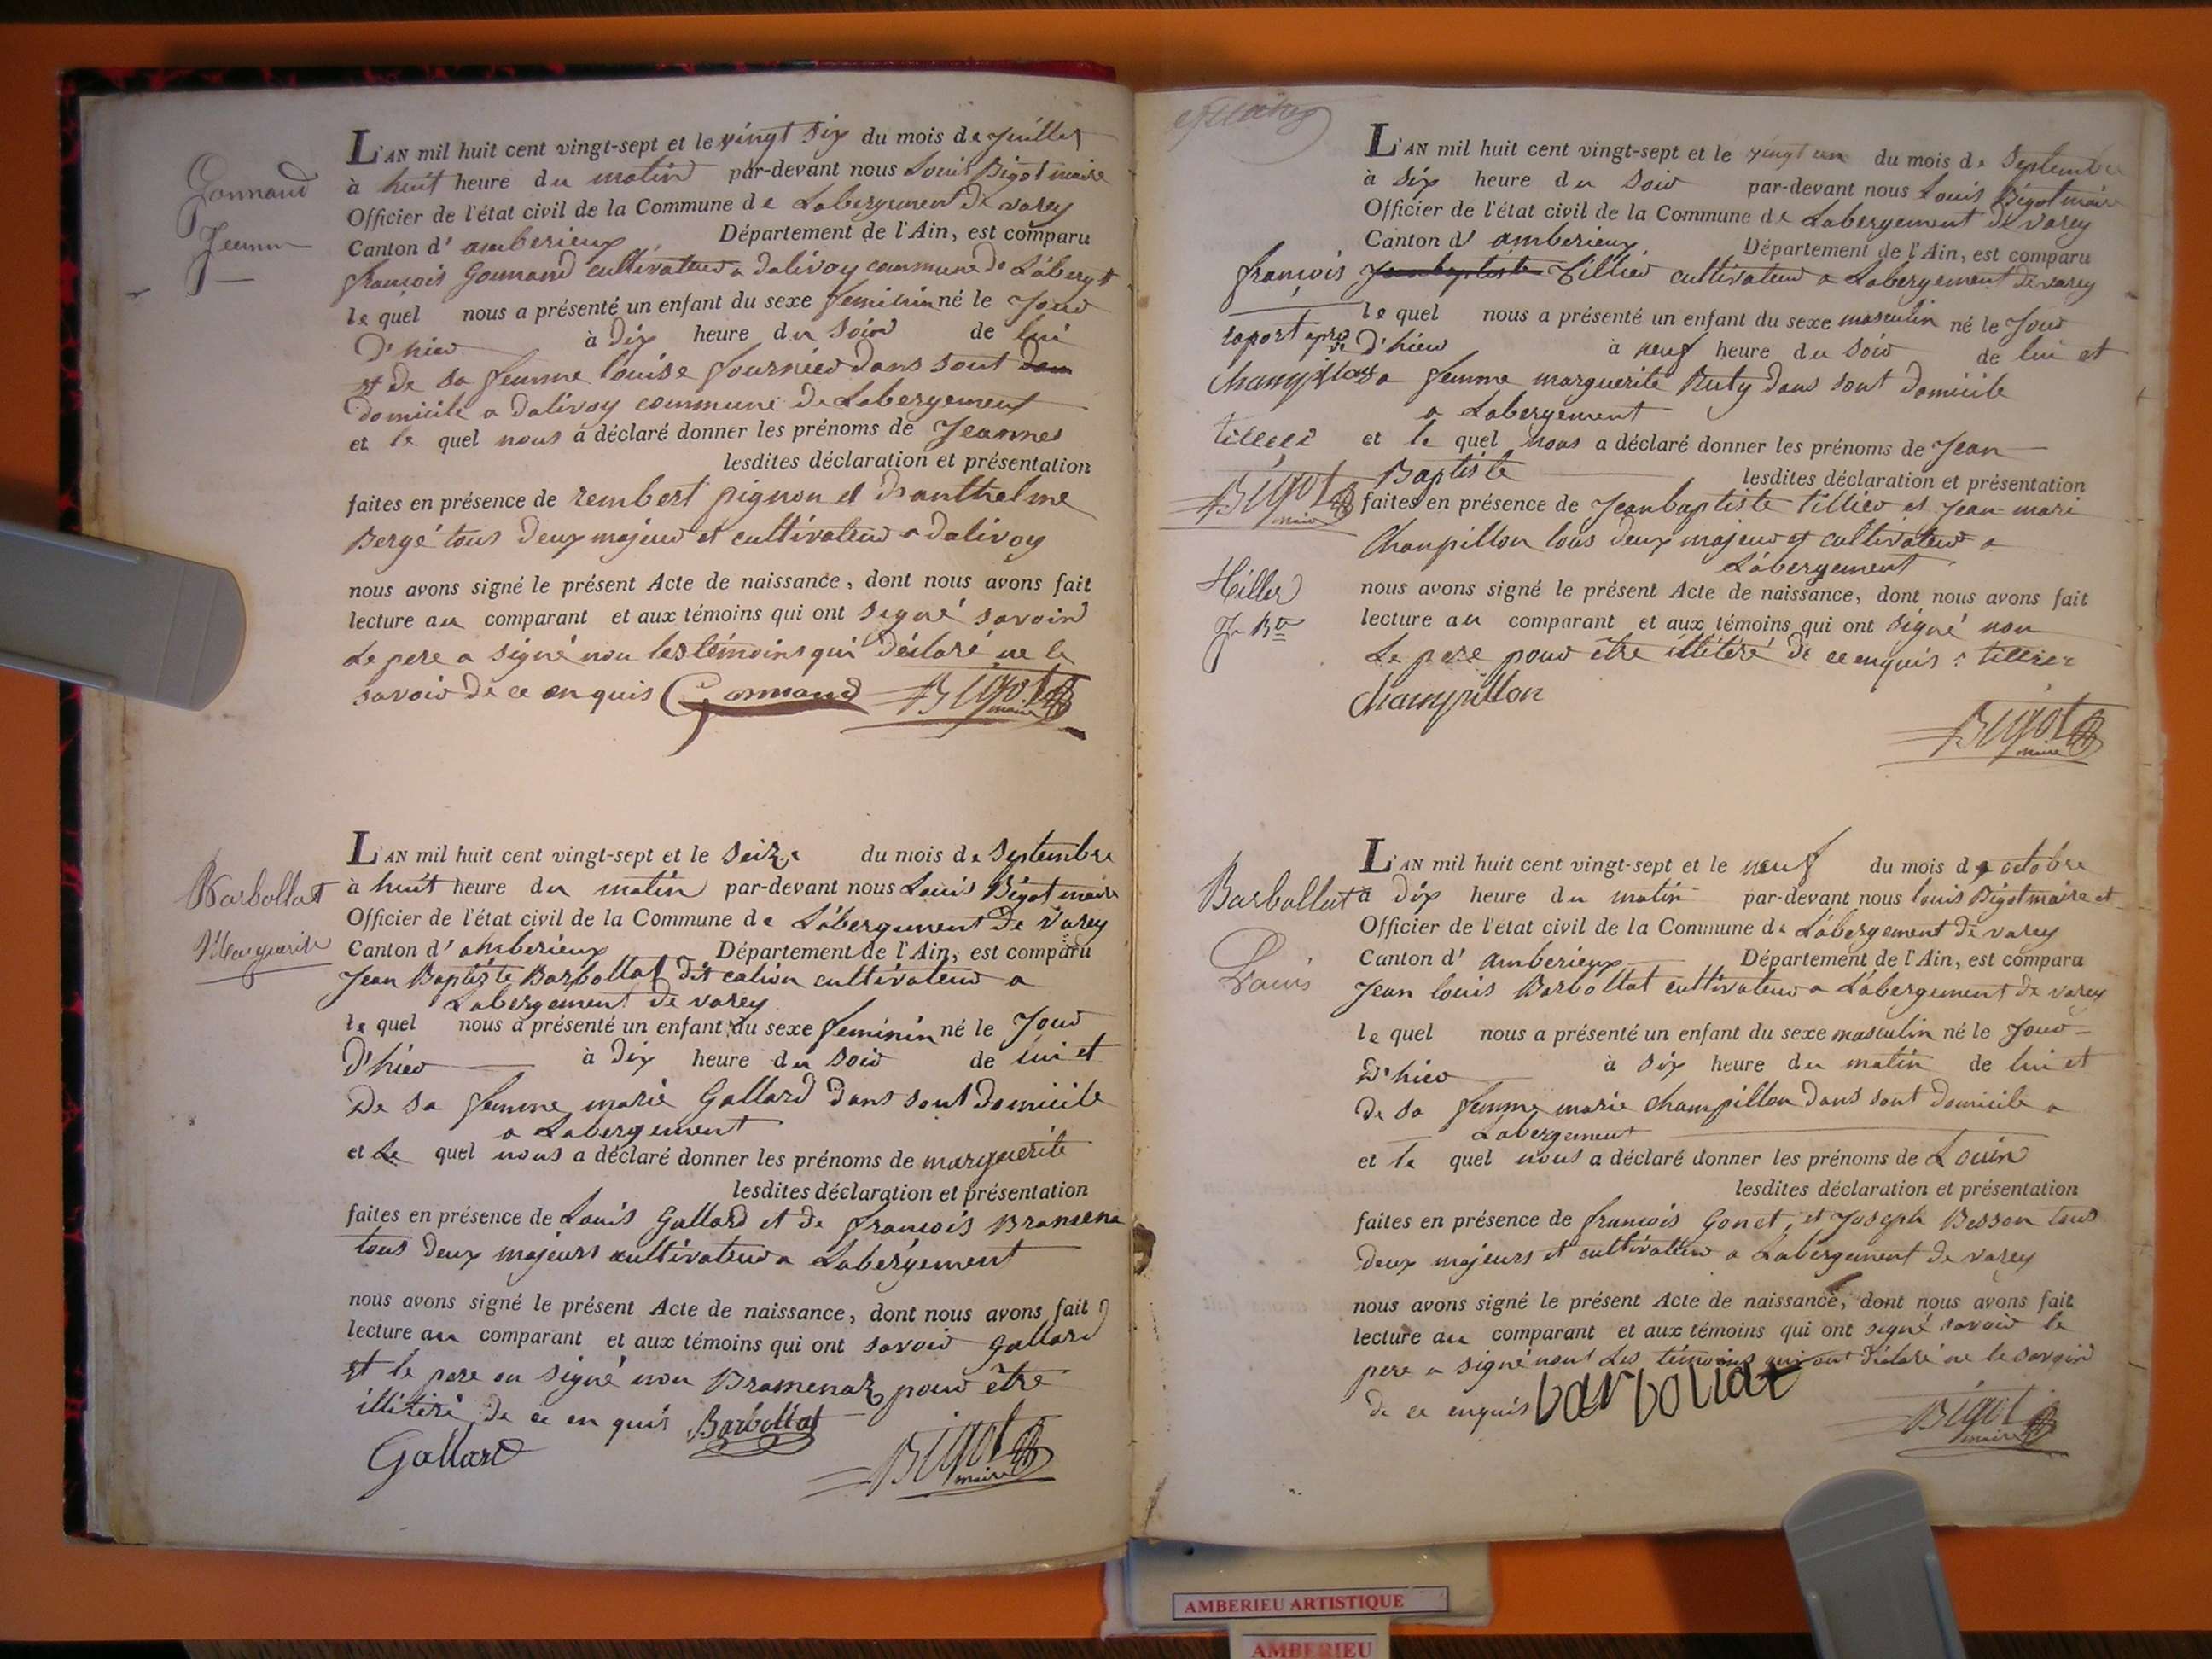 Gonnand
Jeanne
L'AN mil huit cent vingt-sept et le vingt six du mois de Juillet
à huit heure du matin par-devant nous Louis Bigot maire
Officier de l'état civil de la Commune de Labergement de varey
Canton d'amberieux Département de l'Ain, est comparu
françois Gonnand cultivateur a dalivoy commune de Labergt
le quel nous a présenté un enfant du sexe feminin né le Jour
D'hier à dix heure du soir de lui
et de sa femme louise fournier dans sont
domicile a dalivoy commune de Labergement
et le quel nous a déclaré donner les prénoms de Jeannes
lesdites déclaration et présentation
faites en présence de rembert pignon et danthelme
Bergé tous deux majeur et cultivateur a dalivoy
nous avons signé le présent Acte de naissance, dont nous avons fait
lecture au comparant et aux témoins qui ont signé savoir
Le pere a signé non les témoins qui déclaré ne le
savoir de ce en quis Gonnand Bigot
maire
Barbollat
Marguerite
L'AN mil huit cent vingt-sept et le seize du mois de Septembre
à huit heure du matin par-devant nous Louis Bigot maire
Officier de l'état civil de la Commune de Labergement de varey
Canton d'amberieux Département de l'Ain, est comparu
Jean Baptiste Barbollat dit cultivateur a
Labergement de varey
le quel nous a présenté un enfant du sexe feminin né le Jour
D'hier à dix heure du soir de lui et
De sa femme marie Gallard dans sont Domicile
a Labergement
et Le quel nous a déclaré donner les prénoms de marguerite
lesdites déclaration et présentation
faites en présence de Louis Gallard et de françois Bramena
tous deux majeurs cultivateur a Labergement
nous avons signé le présent Acte de naissance, dont nous avons fait
lecture au comparant et aux témoins qui ont savoir Gallard
et le pere on signé non Bramenaz pour être
illitéré de ce en quis Barbollat
Gallard Bigot
maire
L'AN mil huit cent vingt-sept et le vingt un du mois de Septembre
à six heure du soir par-devant nous Louis Bigot maire
Officier de l'état civil de la Commune de Labergement de varey
Canton d'amberieux Département de l'Ain, est comparu
françois Jeanbaptiste Tillier cultivateur a Labergement de varey
le quel nous a présenté un enfant du sexe masculin né le Jour
D'hier à neuf heure du soir de lui et
sa femme marguerite Ruty dans sont domicile
a Labergement
et le quel nous a déclaré donner les prénoms de Jean
Baptiste lesdites déclaration et présentation
faites en présence de Jeanbaptiste tillier et Jean-mari
Champillon tous deux majeur et cultivateur a
Labergement
nous avons signé le présent Acte de naissance, dont nous avons fait
lecture au comparant et aux témoins qui ont signé non
Le pere pour être illitéré de ce enquis
champillon
Bigot
maire
champillon
Bigot
maire
Tillier
Jn Bte
Barbollat
Louis
L'AN mil huit cent vingt-sept et le neuf du mois de octobre
à dix heure du matin par-devant nous louis Bigot maire et
Officier de l'état civil de la Commune de Labergement de varey
Canton d'amberieux Département de l'Ain, est comparu
Jean louis Barbollat cultivateur a Labergement de varey
le quel nous a présenté un enfant du sexe masculin né le Jour
D'hier à six heure du matin de lui et
de sa femme marie champillon dans sont domicile a
Labergement
et le quel nous a déclaré donner les prénoms de Louis
lesdites déclaration et présentation
faites en présence de françois Gonet, et Joseph Besson tous
deux majeurs et cultivateur a Labergement de varey
nous avons signé le présent Acte de naissance, dont nous avons fait
lecture au comparant et aux témoins qui ont signé savoir le
pere a signé nont Les témoins qui ont déclaré ne le savoir
de ce enquis barbollat
Bigot
maire
AMBERIEU ARTISTIQUE
AMBERIEU